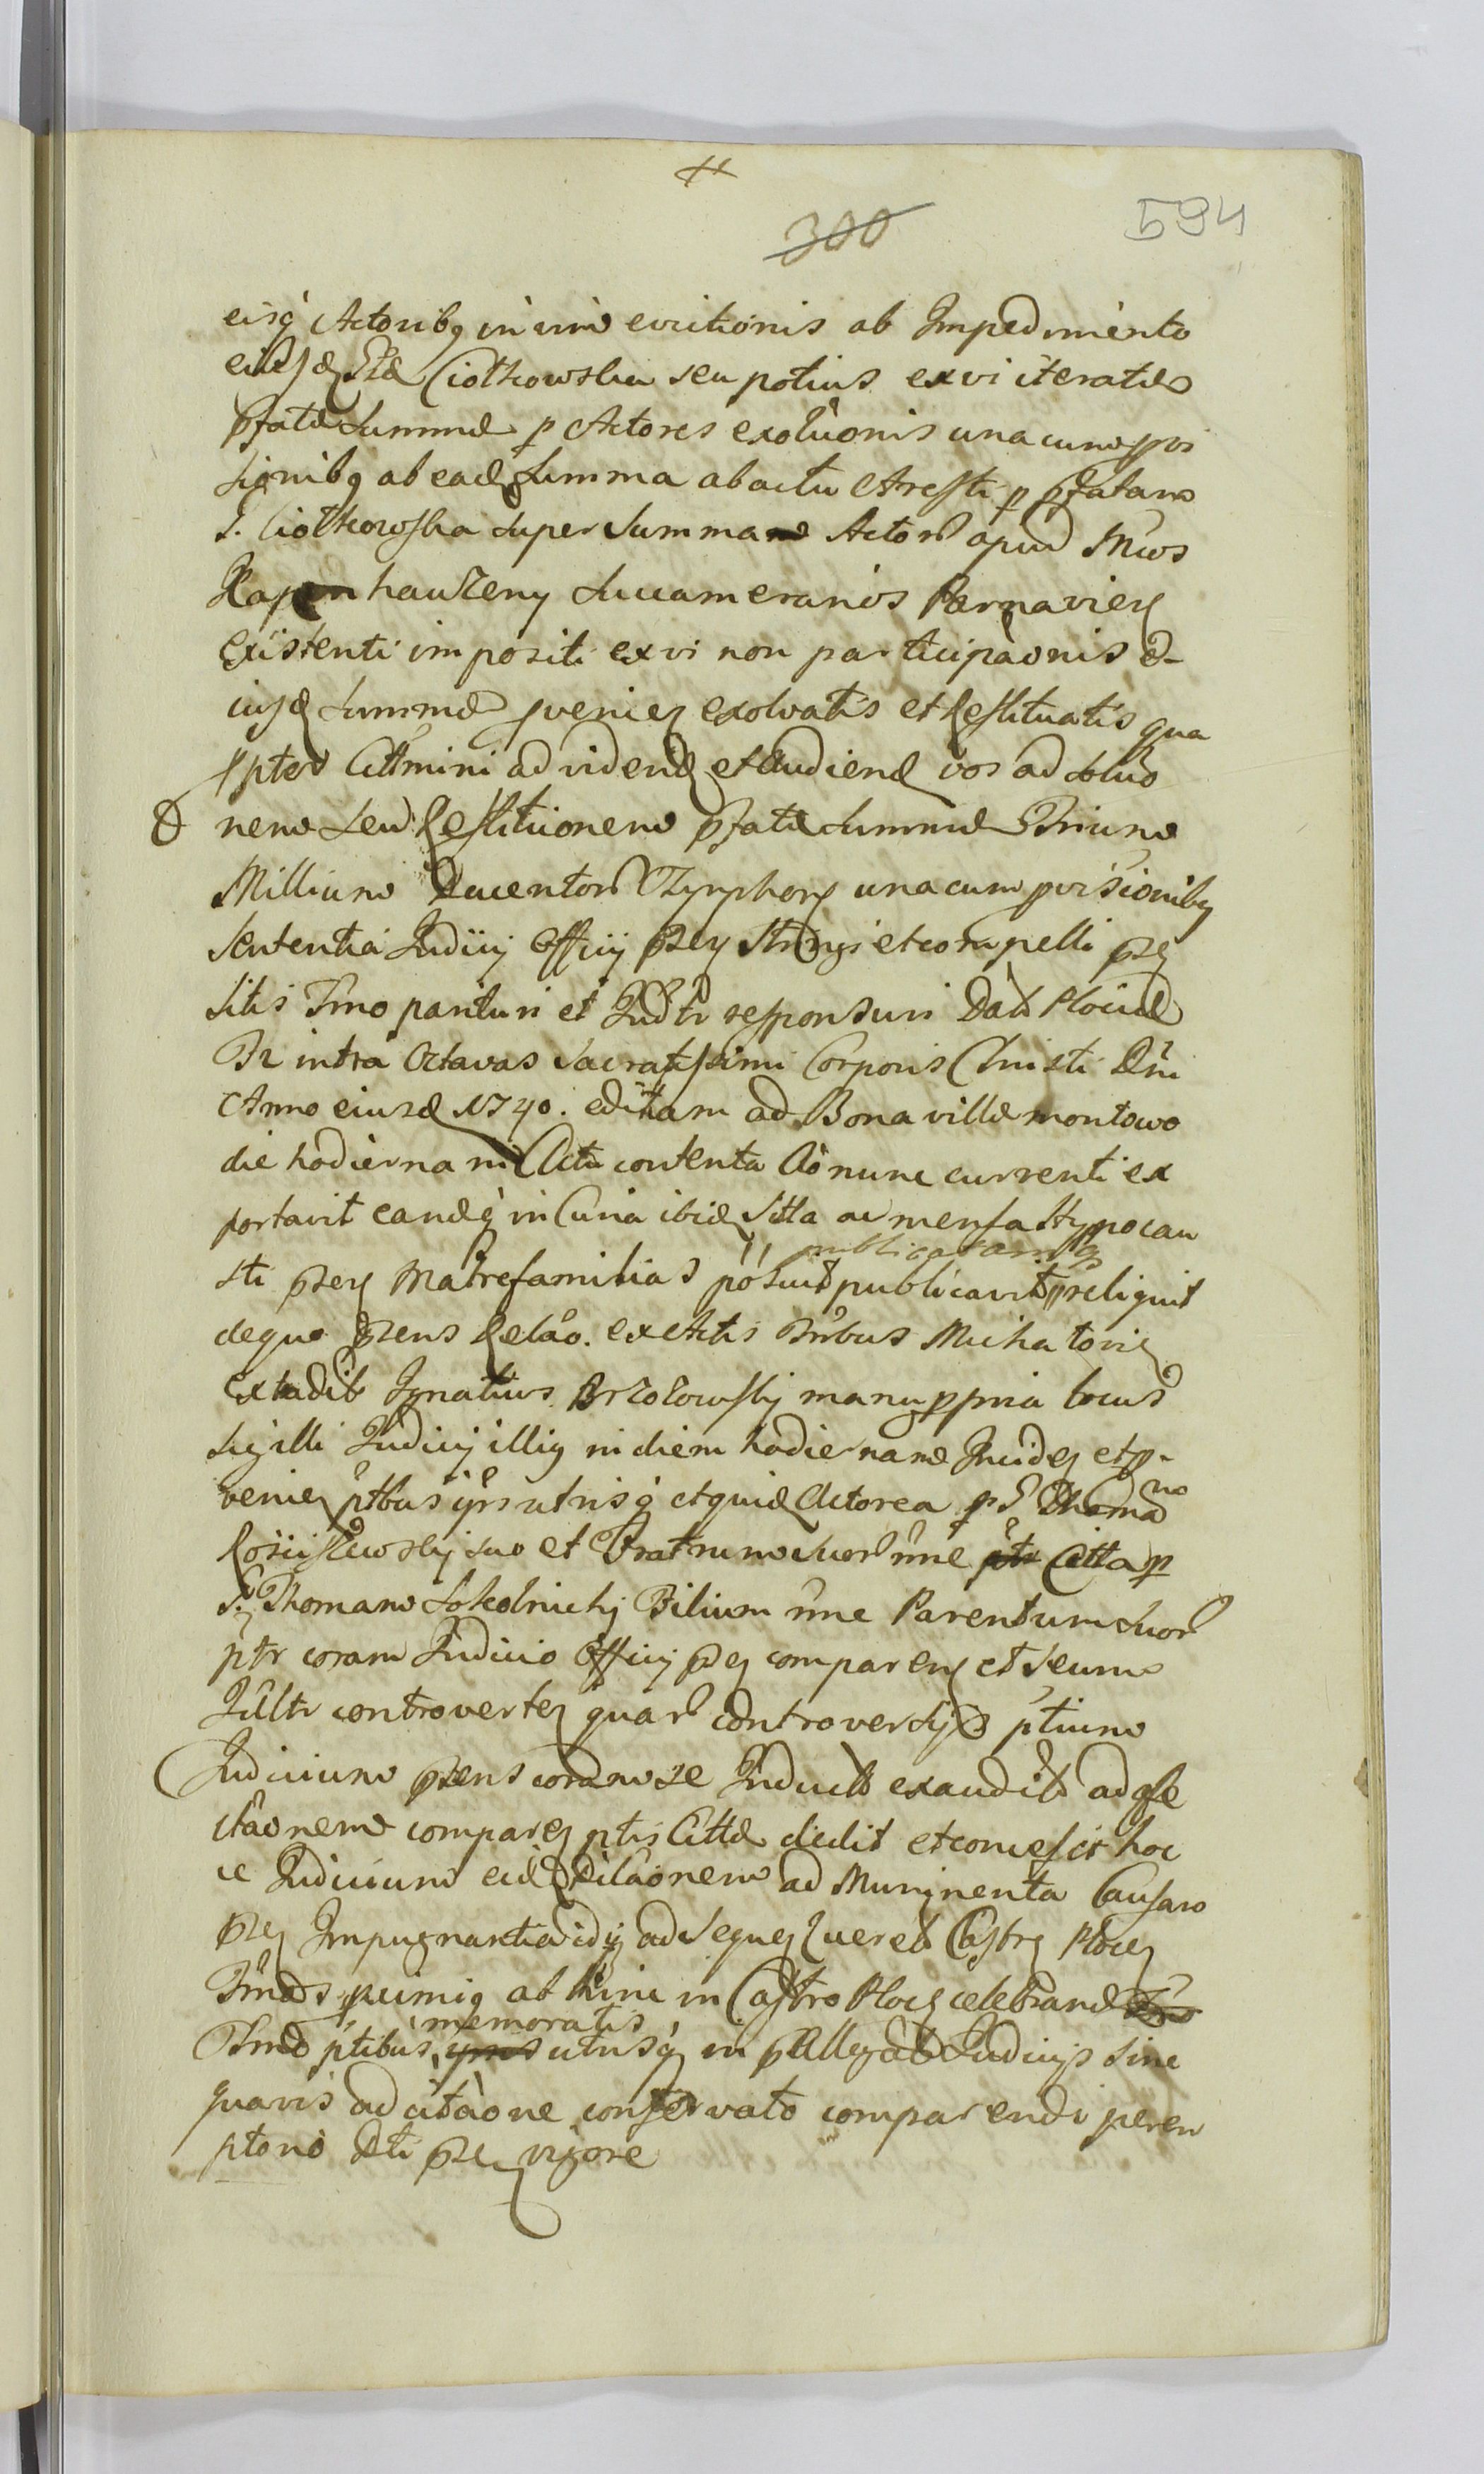 300
594
eisq̀ Actoribq in vim evictionis ab Impedimento
eiusd Gsae Ciołkowska seu potius ex vi iteratae
pfatae Summae p Actores exolu͠onis una cum provi
sionibq ab ead Summa ab actu Aresti p pfatam
G. Ciołkowska super Summam Actor apud Mcos
hauzeny Succameranios Parnavien
existenti impositi ex vi non participaonis e-
iusd Summae pvenien exolvatis et Restituatis qua
ppter Cittmini ad vidend et Audiend vos ad solu͠o
nem seu Restitu͠ionem pfatae Summae Trium
Millium Ducentor Tynphor una cum provisionibq
Sententia Judicij Officij psen stringi et compelli psen
sitis Tmo parituri et Judtr responsuri Dat Plociae
Fr intra Octavas Sacratissimi Corporis Christi Dni
Anno eiusd 1740. editam ad Bona villae montowo
die hodierna in Citta contenta Ao nunc currenti ex
portavit eandq̀ in Curia ibid Sitta ac mensa Hypocau
publicatamq
sti psen Matrefamilias posuit publicavit reliquit
de quo psens Relao. ex Actis Tribus Michatovien
extradit Ignatius Brzozowskj manu ppria locus
Sigilli Judicij illiq in diem hodiernam Inciden et p-
venien ptbus ijs utrisq̀ et quid Actorea p G. Thomam
Rosciszewskj suo et Fratrum suor nne ptr Citta p
G. Thomam Sokolnickj Filium nne Parentum suor
ptr coram Judicio Officij psen comparen et secum
Jultr controverten quar controversijs ptium
Judicium psens coram se Induct exaudit ad affe
ctaonem comparen ptis Cittae dedit et concessit hoc
ce Judicium eid Dilaonem ad Munimenta Causam
psen Impugnantia idq ad sequen Querel Castrn Plocen
Tmnos primiq ab hinc in Castro Plocen celebrand Tmo
memoratis
Tmno ptibus ipsis utrisq̀ in pallegat Judicijs sine
quavis adcitaone conservato comparendi perem
ptorio Dti psen vigore